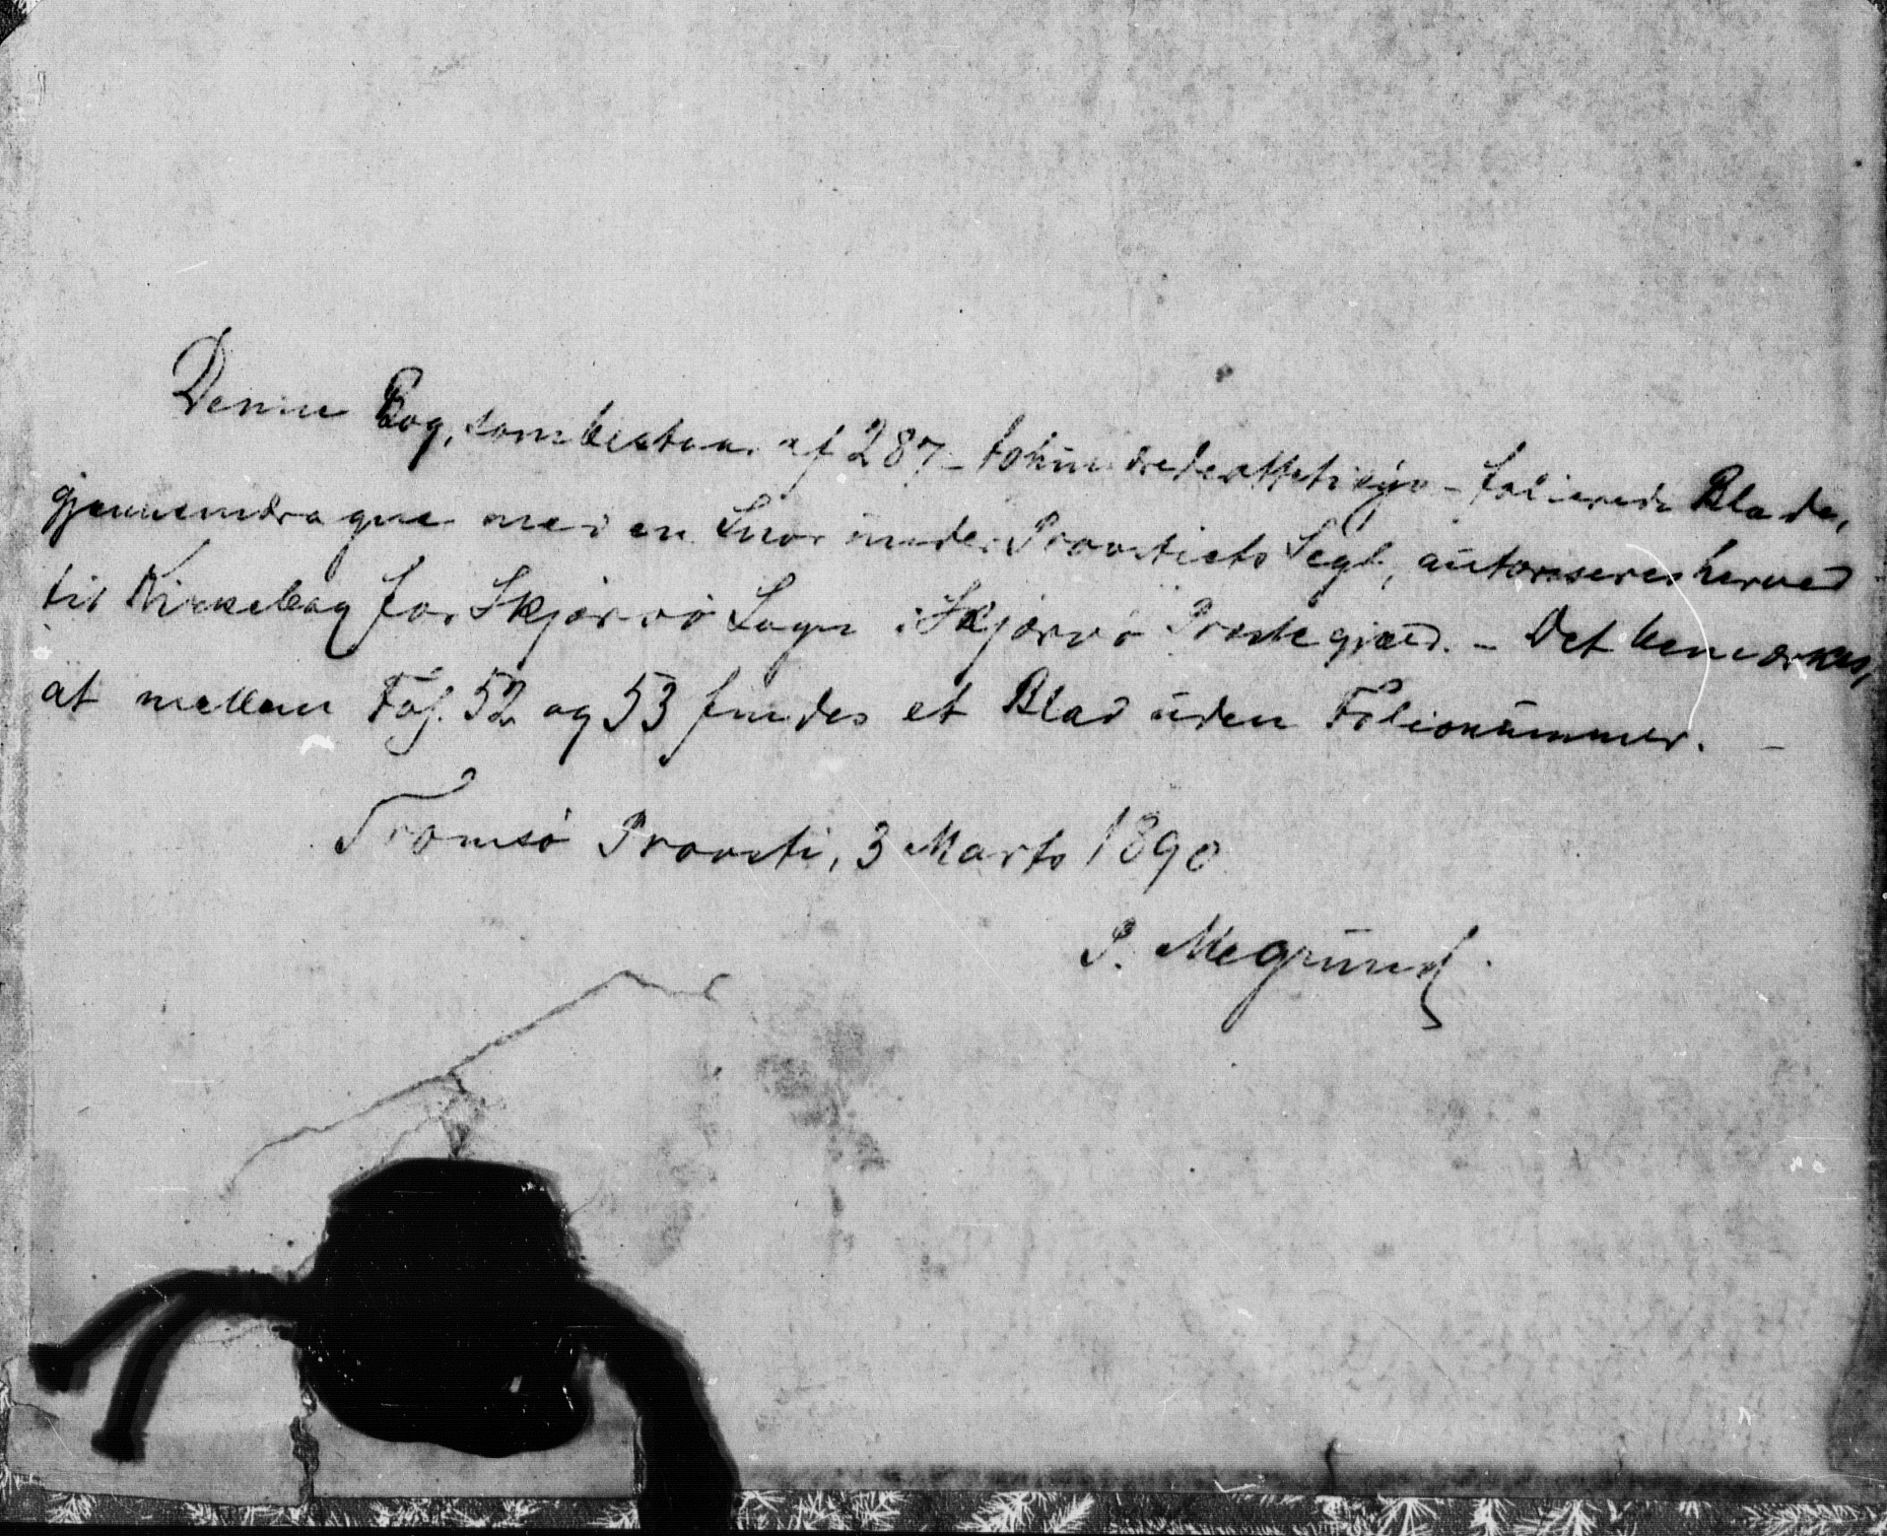 Denne Bog, som bestaar af 287 - tohundredeottetisyv - folierede Blade,
gjennemdragne med en Snor under Provstiets Segl, autoriseres herved
til Kirkebog for Skjærvö Sogn i Skjærvö Præstegjæld. - Det bemærkes,
at mellem Fol. 52 og 53 findes et Blad uden Folionummer. -
Tromsö Provsti, 3 Marts 1890
P. Megrund.